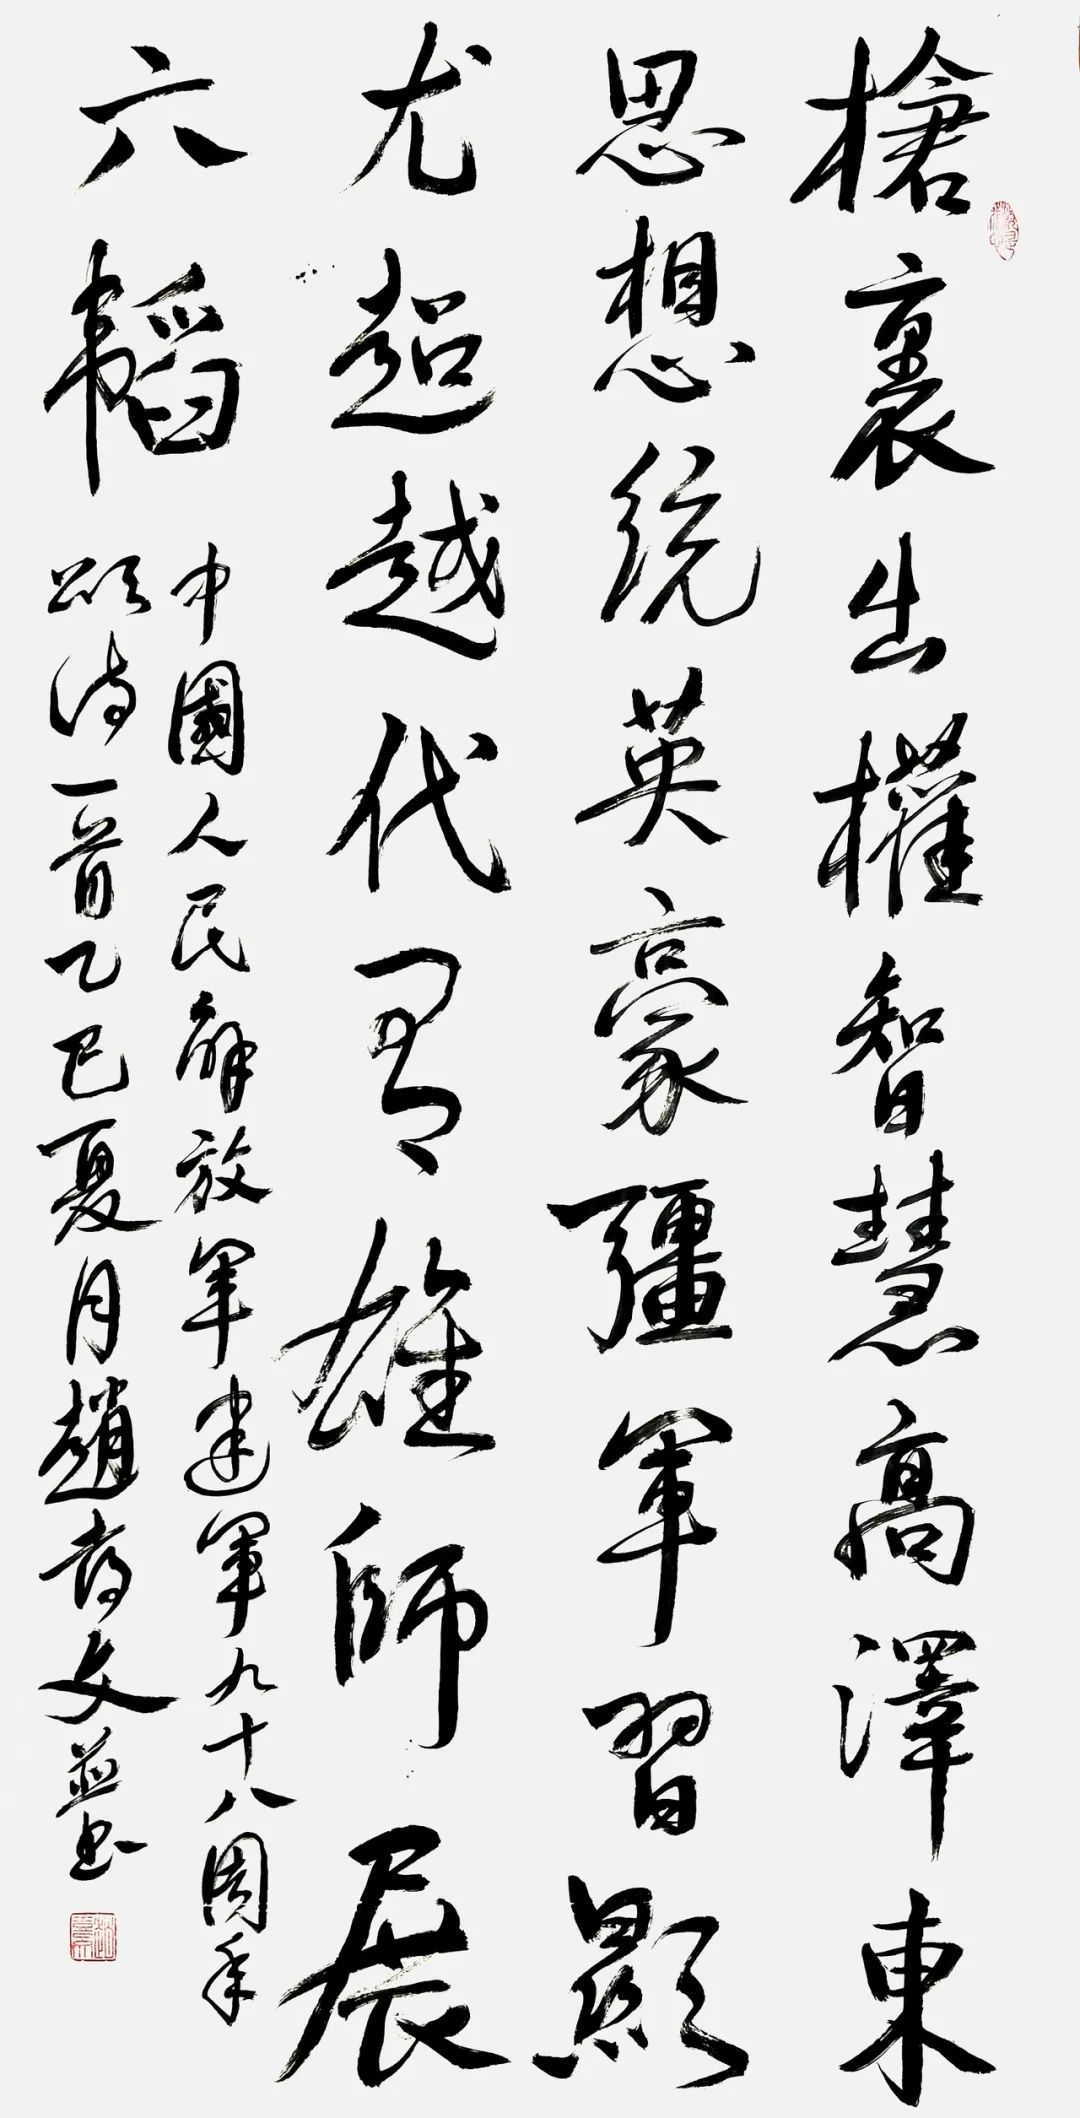 槍裏出權智慧高澤東
思想統英豪彊軍習顯
尤超越代有雄師展
六韜
中國人民解放軍建軍九十八周年
詩一首乙巳夏月趙文並書